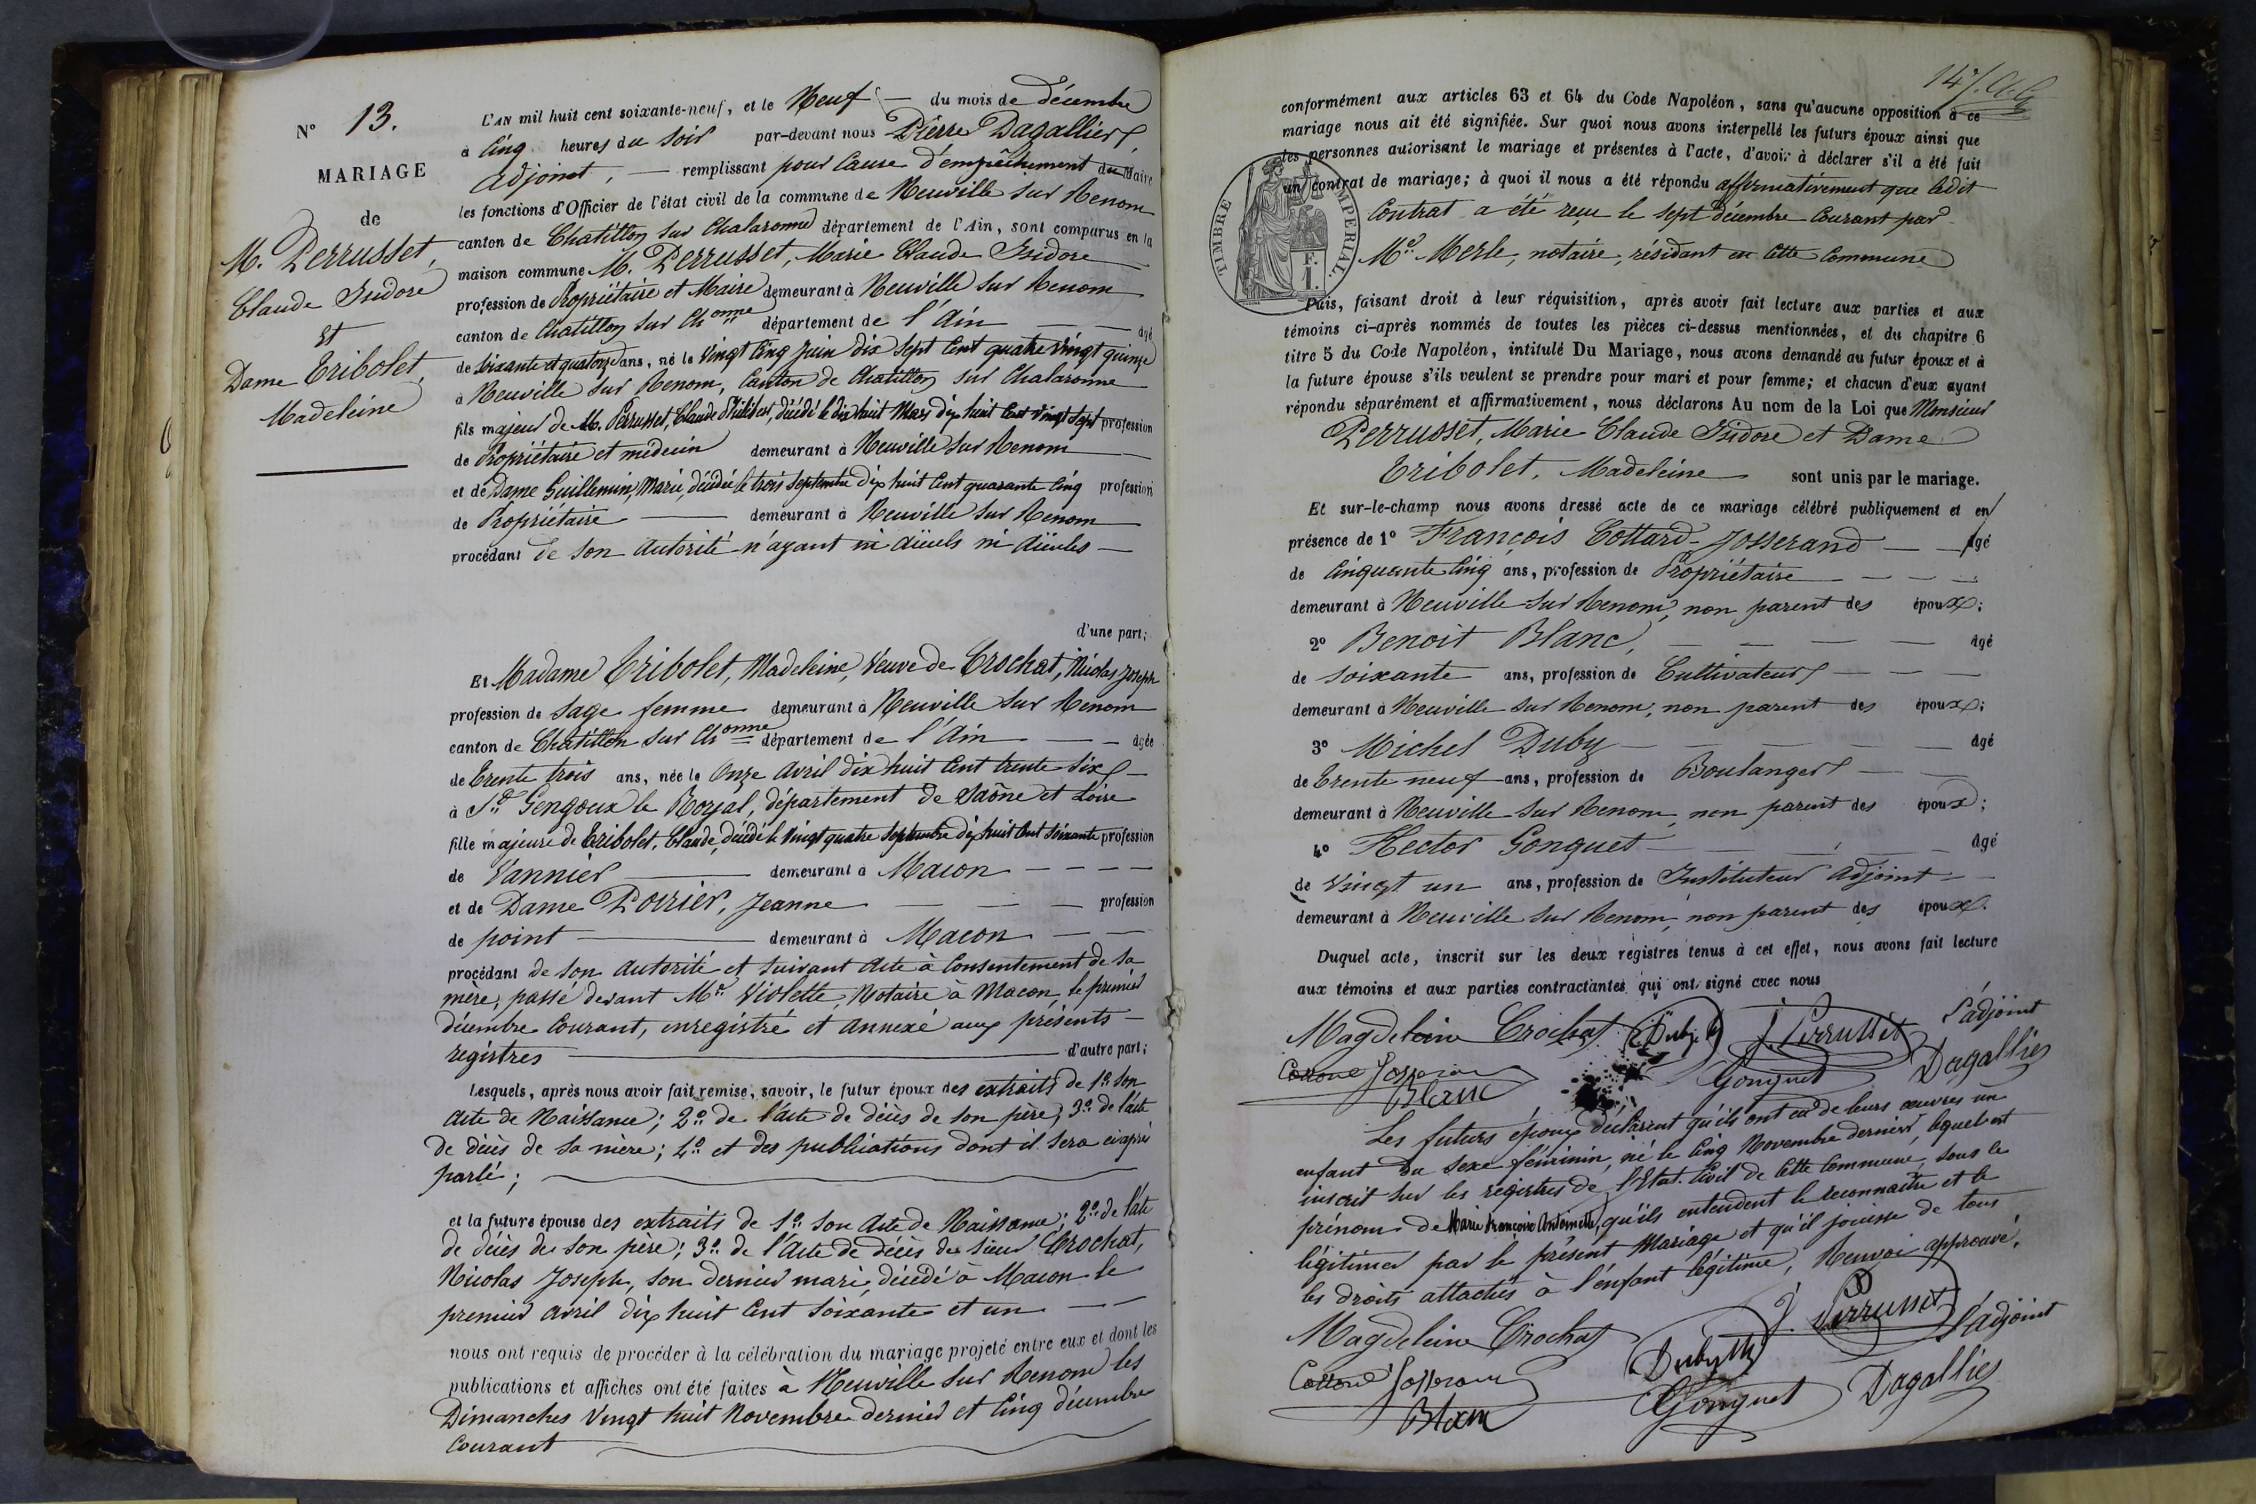 N° 13.
MARIAGE
de
M. Perrusset,
Claude Isidore
Et
Dame Tribolet,
Madeleine
L'AN mil huit cent soixante-neuf, et le Neuf — du mois de décembre
à Cinq heures du Soir par-devant nous Pierre Dagallier,
adjoint, — remplissant pour Cause d'empêchement du Maire
les fonctions d'Officier de l'état civil de la commune de Neuville sur Renom
canton de Chatillon sur Chalaronne département de l'Ain, sont comparus en la
maison commune M. Perrusset, Marie Claude Isidore
profession de Propriétaire et Maire demeurant à Neuville sur Renom
canton de Chatillon sur Chonne département de l'Ain — agé
de soixante et quatorze ans, né le Vingt Cinq Juin dix sept Cent quatre vingt quinze
à Neuville sur Renom, Canton de Chatillon sur Chalaronne
fils majeur de M. Perrusset, Claude Philibert, décédé le dix huit Mars dix huit Cent vingt sept profession
de Propriétaire et médecin demeurant à Neuville sur Renom
et de Dame Guillemin, Marie, décédée le trois Septembre dix huit Cent quarante Cinq profession
de Propriétaire — demeurant à Neuville sur Renom
procédant de son Autorité n'ayant ni aïeuls ni aïeules —
d'une part;
Et Madame Tribolet, Madeleine, Veuve de Crochat, Nicolas Joseph
profession de sage femme demeurant à Neuville sur Renom
canton de Chatillon sur Chonne département de l'Ain — agée
de Trente trois ans, née le Onze Avril dix huit Cent trente six —
à St Gengoux le Royal, département de Saône et Loire
fille majeure de Tribolet, Claude, décédé le Vingt quatre Septembre dix huit Cent soixante profession
de Vannier — demeurant à Macon — — — —
et de Dame Poirier, Jeanne — — — profession
de point — demeurant à Macon — —
procédant de son Autorité et suivant Acte à Consentement de sa
mère, passé devant Me Violette, Notaire à Macon, le premier
décembre Courant, enregistré et Annexé aux présents —
registres — d'autre part;
Lesquels, après nous avoir fait remise, savoir, le futur époux des extraits de 1° son
Acte de Naissance; 2° de l'acte de décès de son père; 3° de l'acte
de décès de sa mère; 4° et des publications dont il sera ci-après
parlé;
et la future épouse des extraits de 1° son Acte de Naissance; 2° de l'acte
de décès de son père; 3° de l'Acte de décès du sieur Crochat,
Nicolas Joseph, son dernier mari, décédé à Macon le
premier Avril dix huit Cent Soixante et un — —
nous ont requis de procéder à la célébration du mariage projeté entre eux et dont les
publications et affiches ont été faites à Neuville sur Renom les
Dimanches Vingt huit Novembre dernier et Cinq décembre
Courant
147.
conformément aux articles 63 et 64 du Code Napoléon, sans qu'aucune opposition à ce
mariage nous ait été signifiée. Sur quoi nous avons interpellé les futurs époux ainsi que
les personnes autorisant le mariage et présentes à l'acte, d'avoir à déclarer s'il a été fait
un contrat de mariage; à quoi il nous a été répondu affirmativement que ledit
Contrat a été reçu le sept décembre Courant par
Me Merle, notaire, résidant en Cette Commune
TIMBRE IMPERIAL.
F.
1.
Puis, faisant droit à leur réquisition, après avoir fait lecture aux parties et aux
témoins ci-après nommés de toutes les pièces ci-dessus mentionnées, et du chapitre 6
titre 5 du Code Napoléon, intitulé Du Mariage, nous avons demandé au futur époux et à
la future épouse s'ils veulent se prendre pour mari et pour femme; et chacun d'eux ayant
répondu séparément et affirmativement, nous déclarons Au nom de la Loi que Monsieur
Perrusset, Marie Claude Isidore et Dame
Tribolet, Madeleine sont unis par le mariage.
Et sur-le-champ nous avons dressé acte de ce mariage célébré publiquement et en
présence de 1° François Cottard-Josserand — — Agé
de Cinquante Cinq ans, profession de Propriétaire — — — —
demeurant à Neuville sur Renom, non parent des époux;
2° Benoit Blanc, — — — — agé
de Soixante ans, profession de Cultivateur — — —
demeurant à Neuville sur Renom, non parent des époux;
3° Michel Duby — — — — agé
de Trente neuf ans, profession de Boulanger — —
demeurant à Neuville sur Renom, non parent des époux;
4° Hector Gonguet — — — agé
de Vingt un ans, profession de Instituteur Adjoint — —
demeurant à Neuville sur Renom, non parent des époux.
Duquel acte, inscrit sur les deux régistres tenus à cet effet, nous avons fait lecture
aux témoins et aux parties contractantes qui ont signé avec nous
Magdeleine Crochat Duby M J. Perrusset L'adjoint
Cottard Josserand Gonguet Dagallier
Blanc
Les futurs époux déclarent qu'ils ont eu de leurs œuvres un
enfant du sexe féminin, né le Cinq Novembre dernier, lequel est
inscrit sur les registres de l'Etat Civil de Cette Commune, sous le
prénom de Marie Françoise Antoinette, qu'ils entendent le reconnaitre et le
légitimer par le présent Mariage et qu'il jouisse de tous
les droits attachés à l'enfant légitime, Renvoi approuvé.
Magdeleine Crochat Duby M J. Perrusset L'adjoint
Cottard Josserand Gonguet Dagallier
Blanc